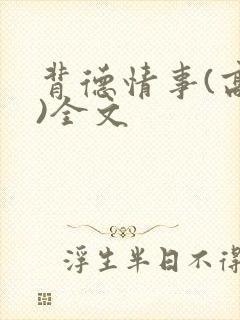 背德情事(高
)全文
浮生半日不得